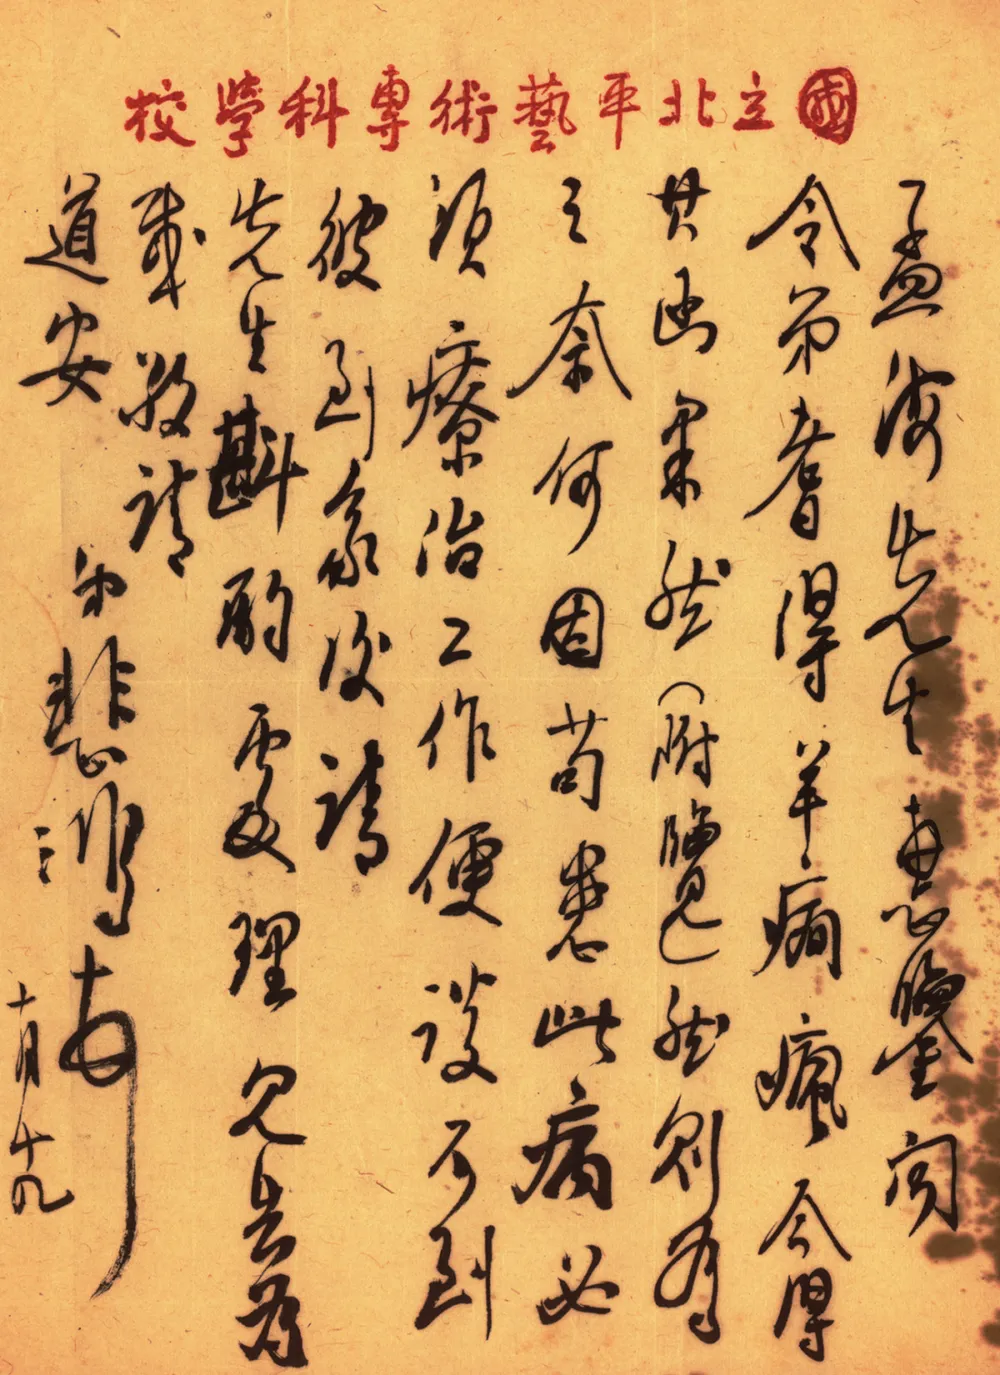 國立北平藝術專科學校
孟海先生惠鑒閱
令弟耆得羊癇瘋今得
其函果然（附臨覽）然則有
之奈何因苟患此病必
須療治工作便談不到
彼到家後請
先生斟酌處理見告為
感敬請
道安
弟悲鴻
十月十九